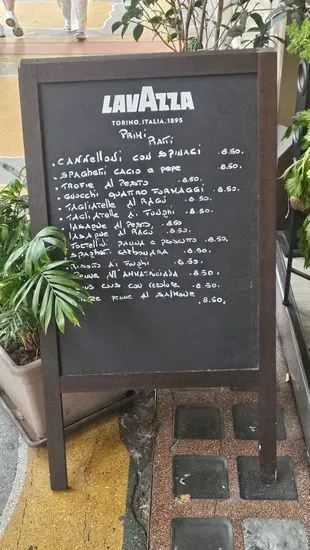 LAVAZZA
TORINO, ITALIA, 1895
PRIMI
PIATTI
• CANNELLONI CON SPINACI .8.50.
• SPAGHETTI CACIO e pepe .8.50.
• TROFIE AL PESTO .8.50.
• GNOCCHI QUATTRO FORMAGGI .8.50.
• TAGLIATELLE AL RAGÙ .8.50.
• TAGLIATELLE AI FUNGHI .8.50.
LASAGNE AL PESTO .8.50.
LASAGNE AL RAGÙ .8.50.
TORTELLINI PANNA e PROSCIUTTO .8.50.
SPAGHETTI CARBONARA .8.50.
RISOTTO AI FUNGHI .8.50.
PENNE ALL'AMMATRICIANA .8.50.
CUS CON VERDURE .8.50.
PENNE AL SALMONE .8.50.